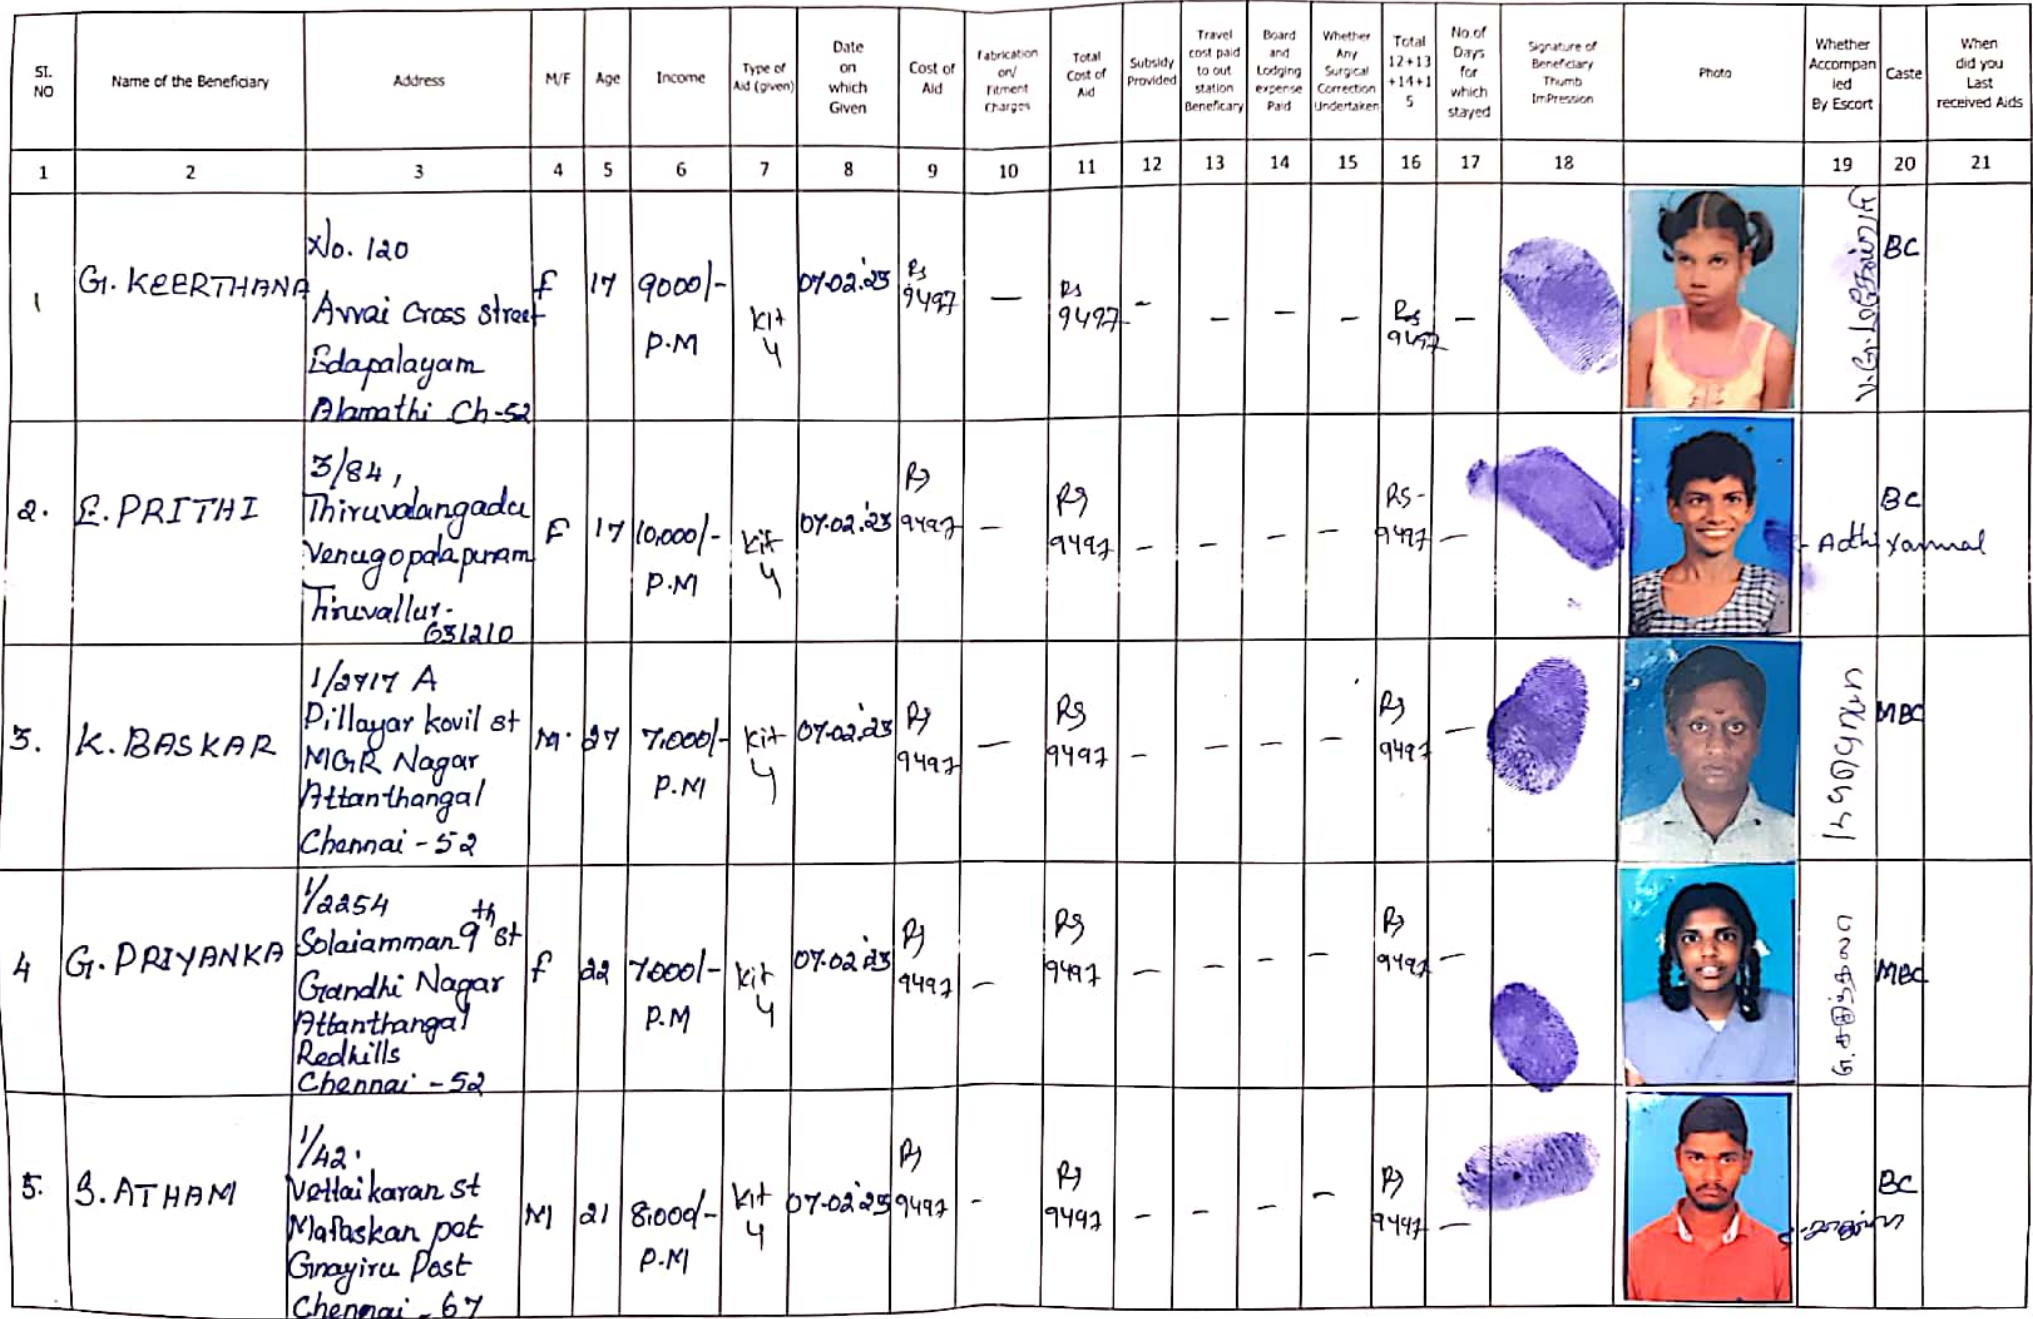 SI. NO
Name of the Beneficiary
Address
M/F
Age
Income
Type of Aid (given)
Date on which Given
Cost of Aid
Fabrication on/ Fitment Charges
Total Cost of Aid
Subsidy Provided
Travel cost paid to out station Beneficary
Board and Lodging expense Paid
Whether Any Surgical Correction Undertaken
Total 12+13 +14+1 5
No.of Days for which stayed
Signature of Beneficiary Thumb ImPression
Photo
Whether Accompan ied By Escort
Caste
When did you Last received Aids
1 2 3 4 5 6 7 8 9 10 11 12 13 14 15 16 17 18 19 20 21
1
G. KEERTHANA
No. 120
Avvai Cross street
Edapalayam
Alamathi Ch-52
F
17
9000/-
P.M
Kit
4
07.02.'23
Rs
9497
—
Rs
9497
-
-
-
-
Rs
9497
-
BC
2.
E. PRITHI
3/84,
Thiruvalangadu
Venugopalapuram
Tiruvallur-
631210
F
17
10,000/-
P.M
Kit
4
07.02.'23
Rs
9497
-
Rs
9497
-
-
-
-
Rs-
9497
-
BC
3.
K. BASKAR
1/2717 A
Pillayar kovil st
MGR Nagar
Attanthangal
Chennai - 52
M.
27
7,000/-
P.M
Kit
4
07.02.'23
Rs
9497
-
Rs
9497
-
-
-
-
Rs
9497
-
MBC
4
G. PRIYANKA
1/2254
Solaiamman 9th st
Gandhi Nagar
Attanthangal
Redhills
Chennai - 52
F
22
7000/-
P.M
Kit
4
07.02.'23
Rs
9497
-
Rs
9497
-
-
-
-
Rs
9497
-
MBC
5.
S. ATHAM
1/42.
Vettaikaran st
pet
Gnayiru Post
Chennai - 67
M
21
8,000/-
P.M
Kit
4
07.02.'23
Rs
9497
-
Rs
9497
-
-
-
-
Rs
9497
-
BC